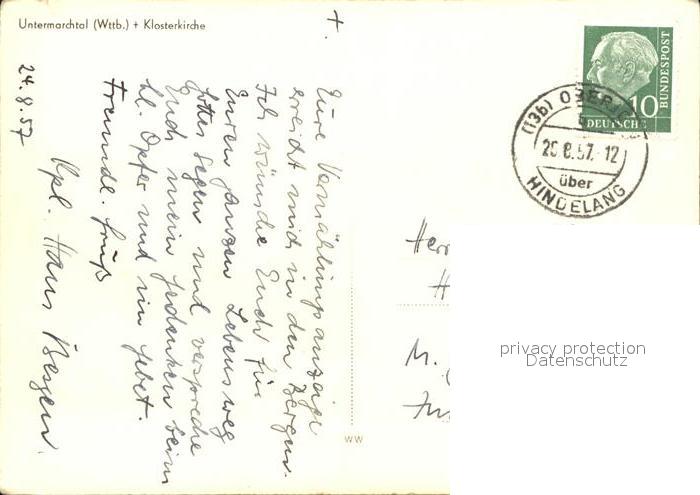 Untermarchtal (Wttb.) + Klosterkirche
+.
24.8.57
Eure Vermählungsanzeige
erreicht mich in den Bergen.
Ich wünsche Euch für
Euren ganzen Lebensweg
Gottes Segen und verspreche
Euch mein Gedenken beim
hl. Opfer und im Gebet.
Freundl. Gruß
Kpl. Hans Bergen.
10
DEUTSCHE
BUNDESPOST
(13b) OBER
25.8.57.-12
über
HINDELANG
Herr
H
M.
WW
privacy protection
Datenschutz